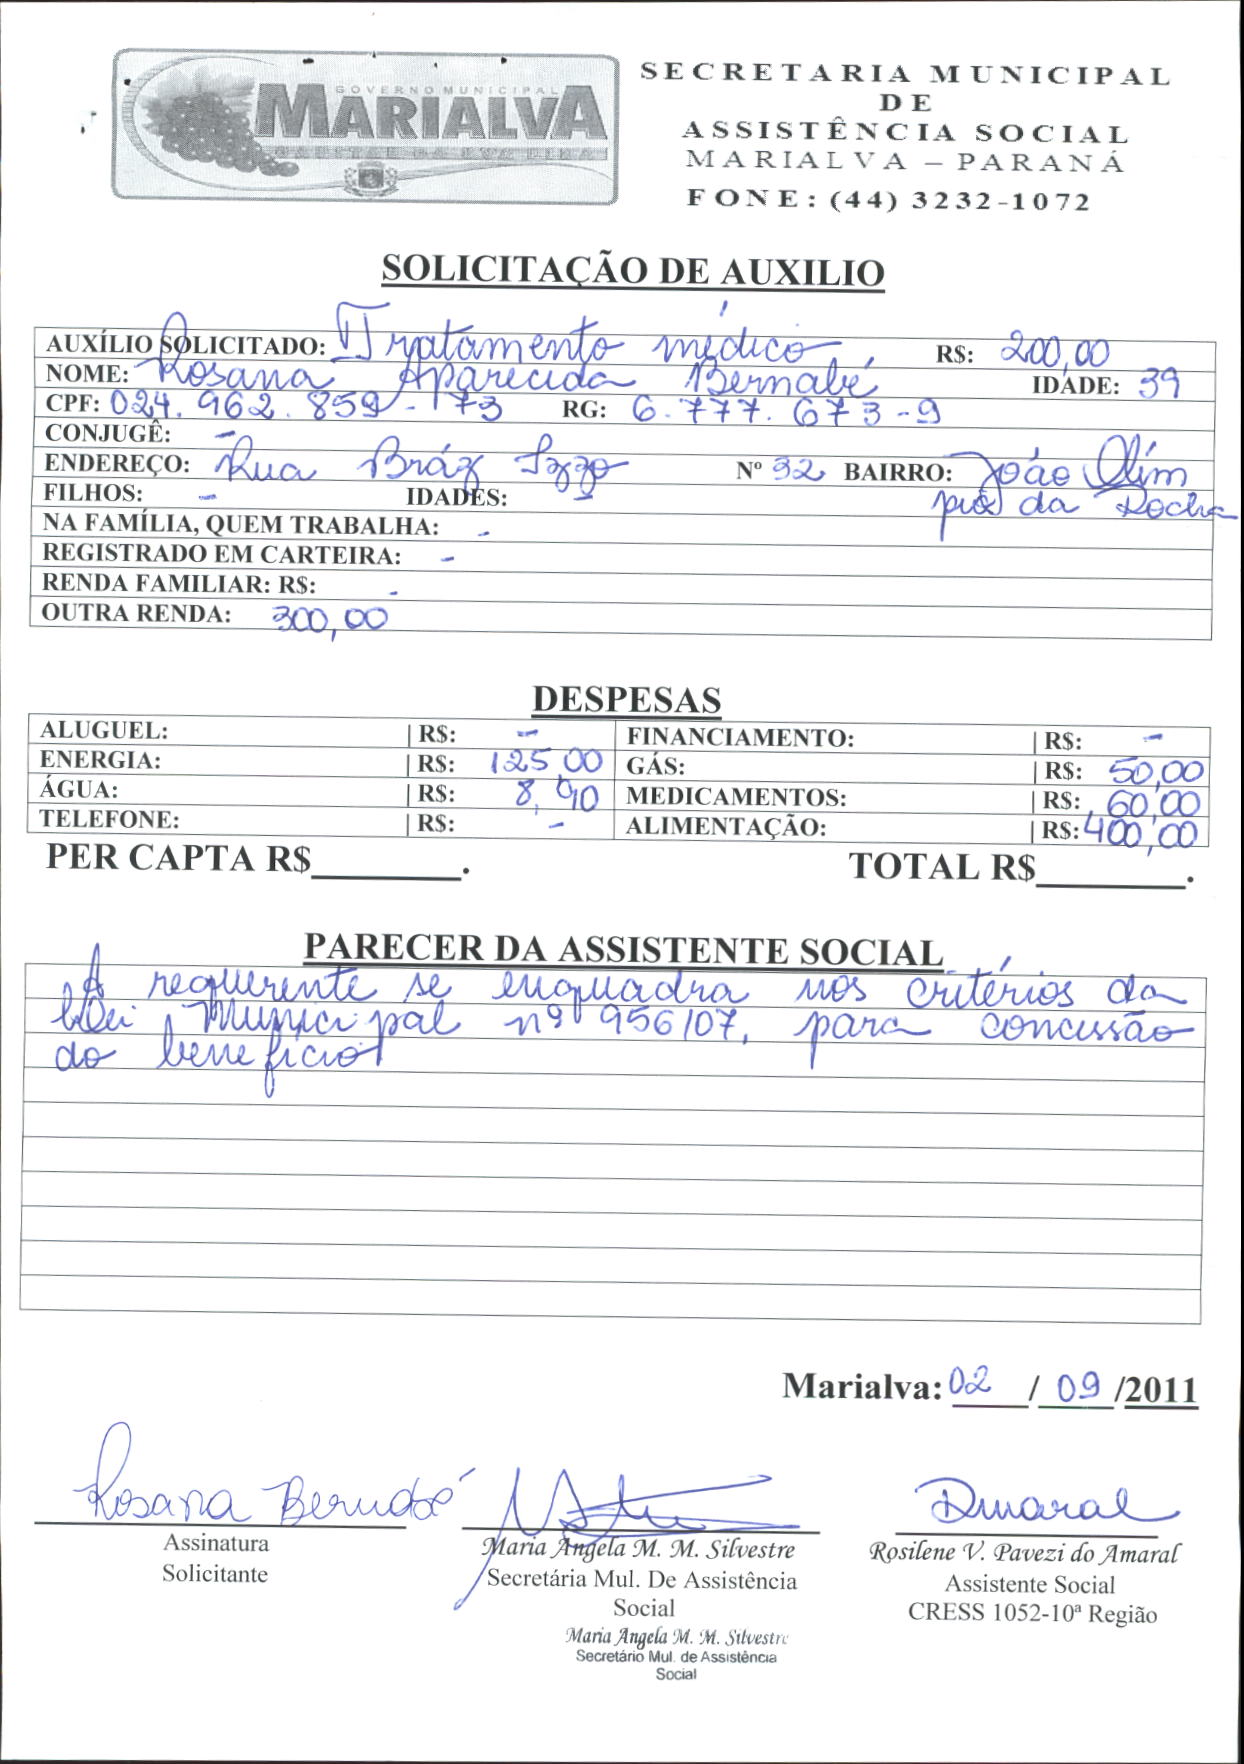 GOVERNO MUNICIPAL
MARIALVA
CAPITAL DA UVA FINA
SECRETARIA MUNICIPAL
DE
ASSISTÊNCIA SOCIAL
MARIALVA – PARANÁ
FONE: (44) 3232-1072
SOLICITAÇÃO DE AUXILIO
AUXÍLIO SOLICITADO: Tratamento médico R$: 200,00
NOME: Rosana Aparecida Bernabé IDADE: 39
CPF: 024.962.859-73 RG: 6.777.673-9
CONJUGÊ: -
ENDEREÇO: Rua Bráz Izzo Nº 32 BAIRRO: João Olím
FILHOS: - IDADES: pio da Rocha
NA FAMÍLIA, QUEM TRABALHA: -
REGISTRADO EM CARTEIRA: -
RENDA FAMILIAR: R$: -
OUTRA RENDA: 300,00
DESPESAS
ALUGUEL: | R$: - FINANCIAMENTO: | R$: -
ENERGIA: | R$: 125,00 GÁS: | R$: 50,00
ÁGUA: | R$: 8,90 MEDICAMENTOS: | R$: 60,00
TELEFONE: | R$: - ALIMENTAÇÃO: | R$: 400,00
PER CAPTA R$________. TOTAL R$________.
PARECER DA ASSISTENTE SOCIAL
A requerente se enquadra nos critérios da
Lei Municipal nº 956/07, para concussão
do benefício
Marialva: 02 / 09 /2011
Rosana Bernabé Dmaral
Assinatura
Solicitante
Maria Angela M. M. Silvestre
Secretária Mul. De Assistência
Social
Maria Angela M. M. Silvestre
Secretário Mul. de Assistência
Social
Rosilene V. Pavezi do Amaral
Assistente Social
CRESS 1052-10ª Região